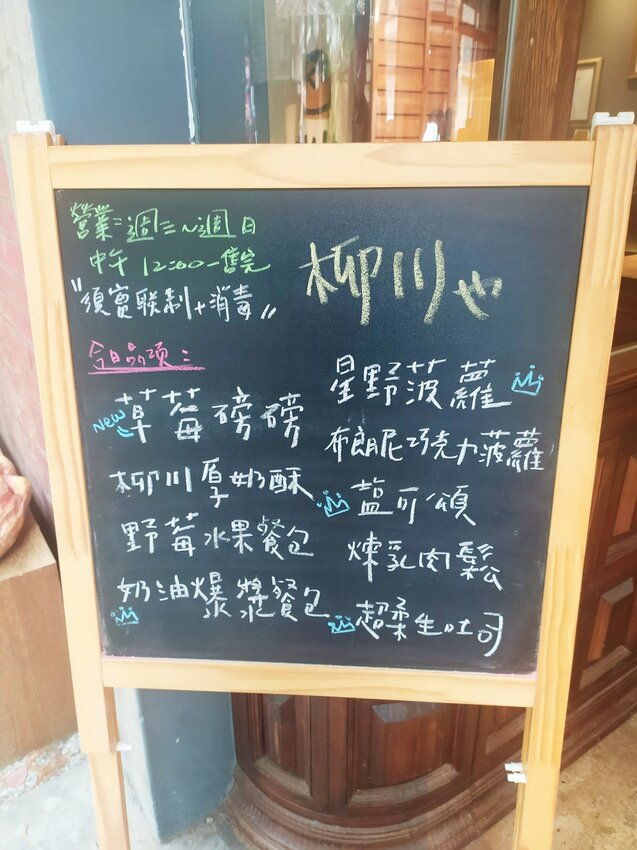 營業:週三~週日
中午 12:00-售完
"須實联制+消毒"
柳川也
今日品项:
New 草莓磅磅
柳川厚奶酥
野莓水果餐包
奶油爆漿餐包
星野菠蘿
布朗尼巧克力菠蘿
塩可頌
煉乳肉鬆
超柔生吐司